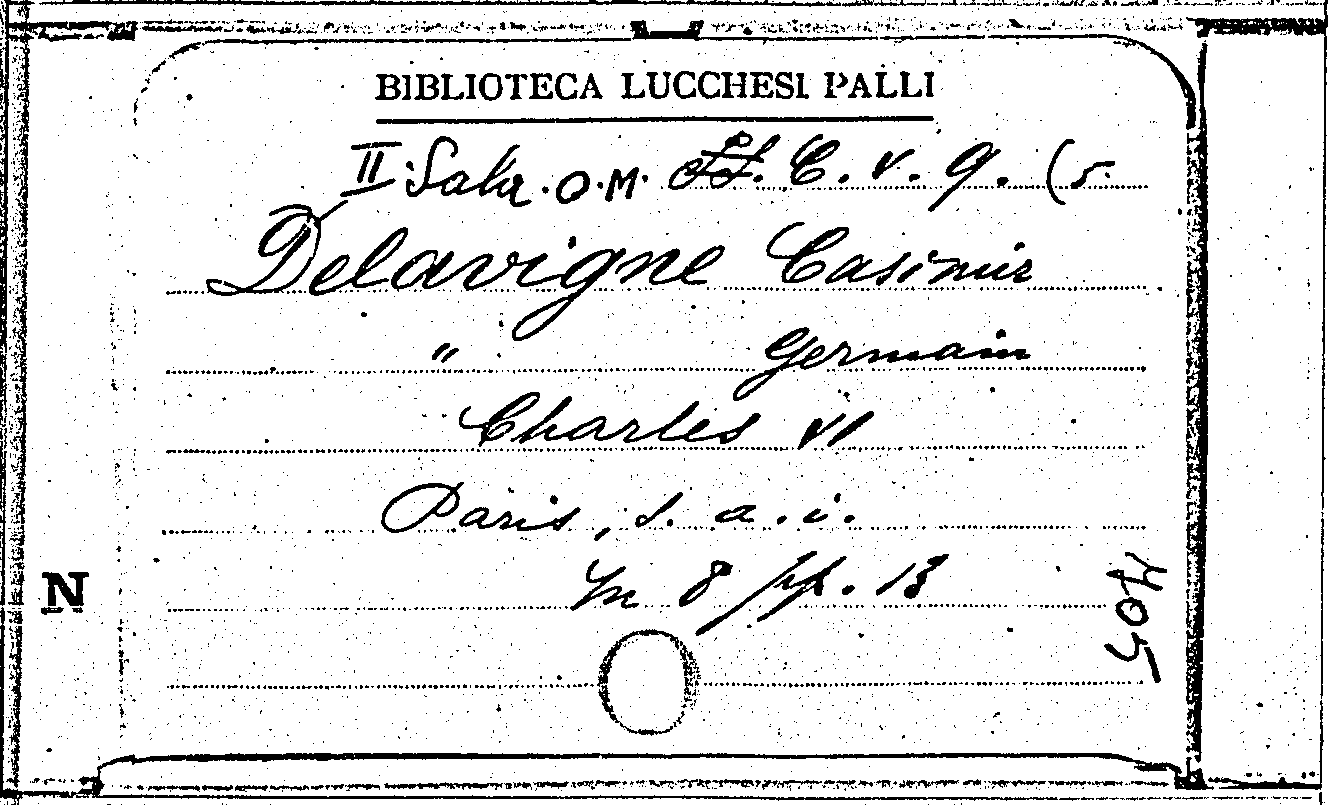 BIBLIOTECA LUCCHESI PALLI
II Sala O.M. C. V. 9. (5.
Delavigne Casimir
" Germain
Charles VI
Paris, s. a. i.
In 8 pp. 13
N
405